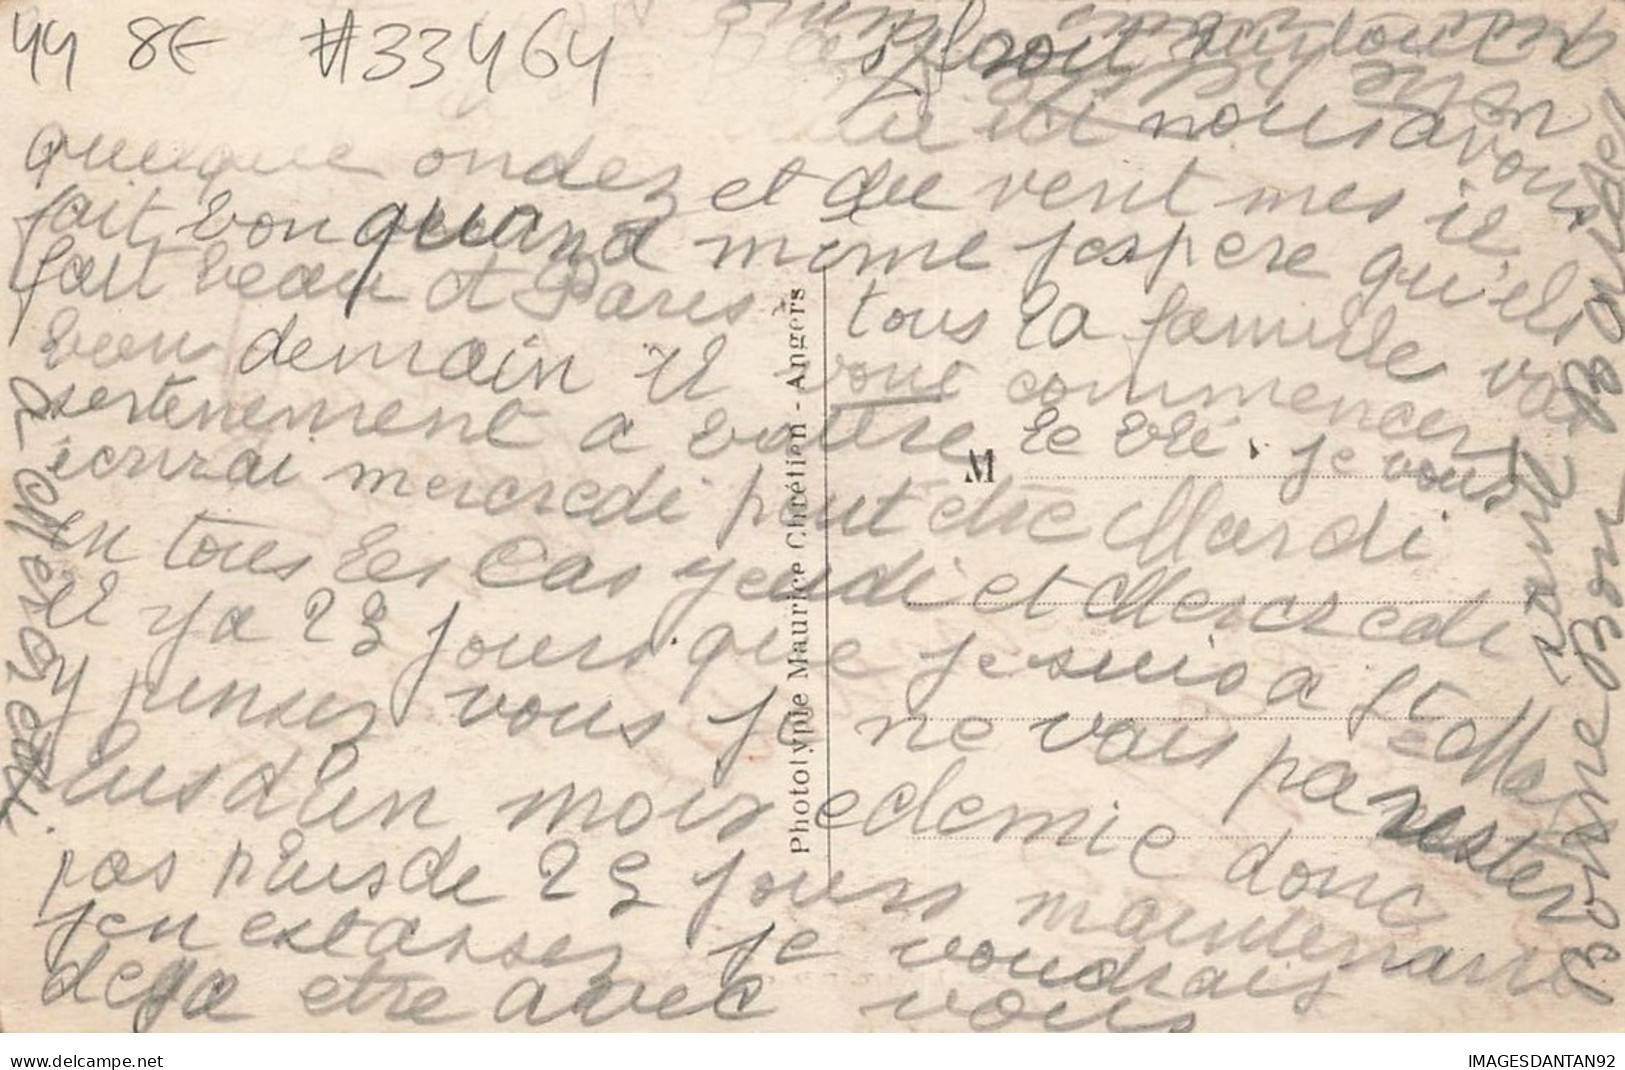 44 8E #33464
nous avons
quelque ondez et du vent mes il
fait bon quand meme jespere qu'els
fait beau a Paris tous la famille va
bien demain il vont commencer
sertenement a battre le blé. je vous
ecrirai mercredi peut etre Mardi
En tous les cas jeudi et Mercredi
il y a 23 jours que je suis a Ste Ma
y penser vous je ne vais pas rester
plus d'un mois edemie donc
pas plus de 25 jours maintenant
jen ext assez je voudrais
deja etre avec vous
M
Phototypie Maurice Chrétien - Angers
Bonne Bon
www.delcampe.net
IMAGESDANTAN92